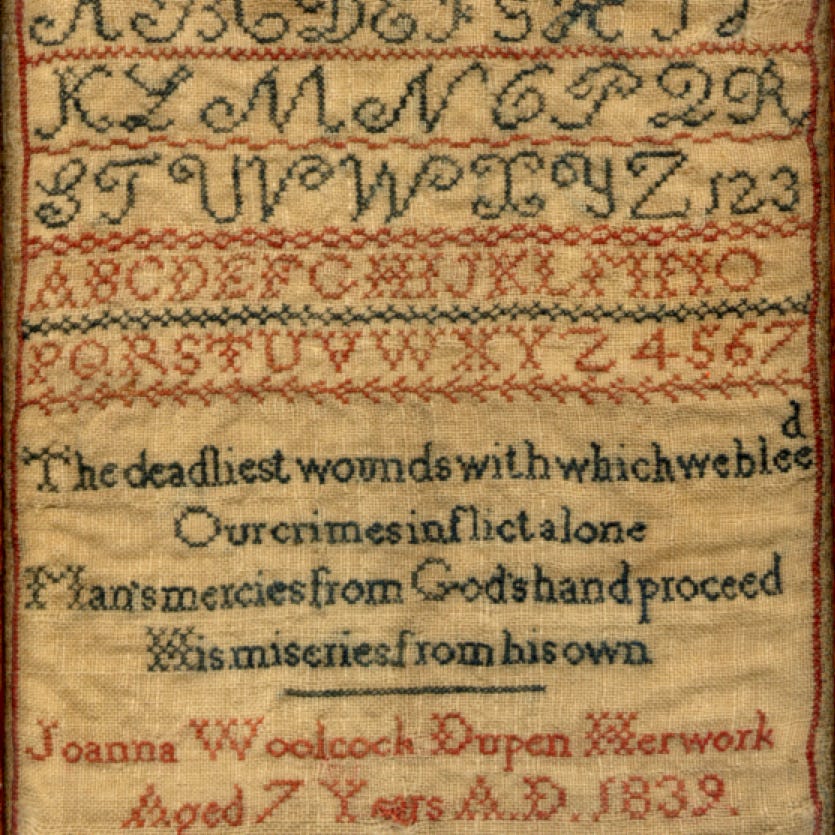 A B C D E F G H I J
K L M N O P Q R
S T U V W X Y Z 1 2 3
A B C D E F G H I J K L M N O
P Q R S T U V W X Y Z 4 5 6 7
The deadliest wounds with which we bleed
Our crimes inflict alone
Man's mercies from God's hand proceed
His miseries from his own
Joanna Woolcock Dupen Her work
Aged 7 Years A.D. 1839.